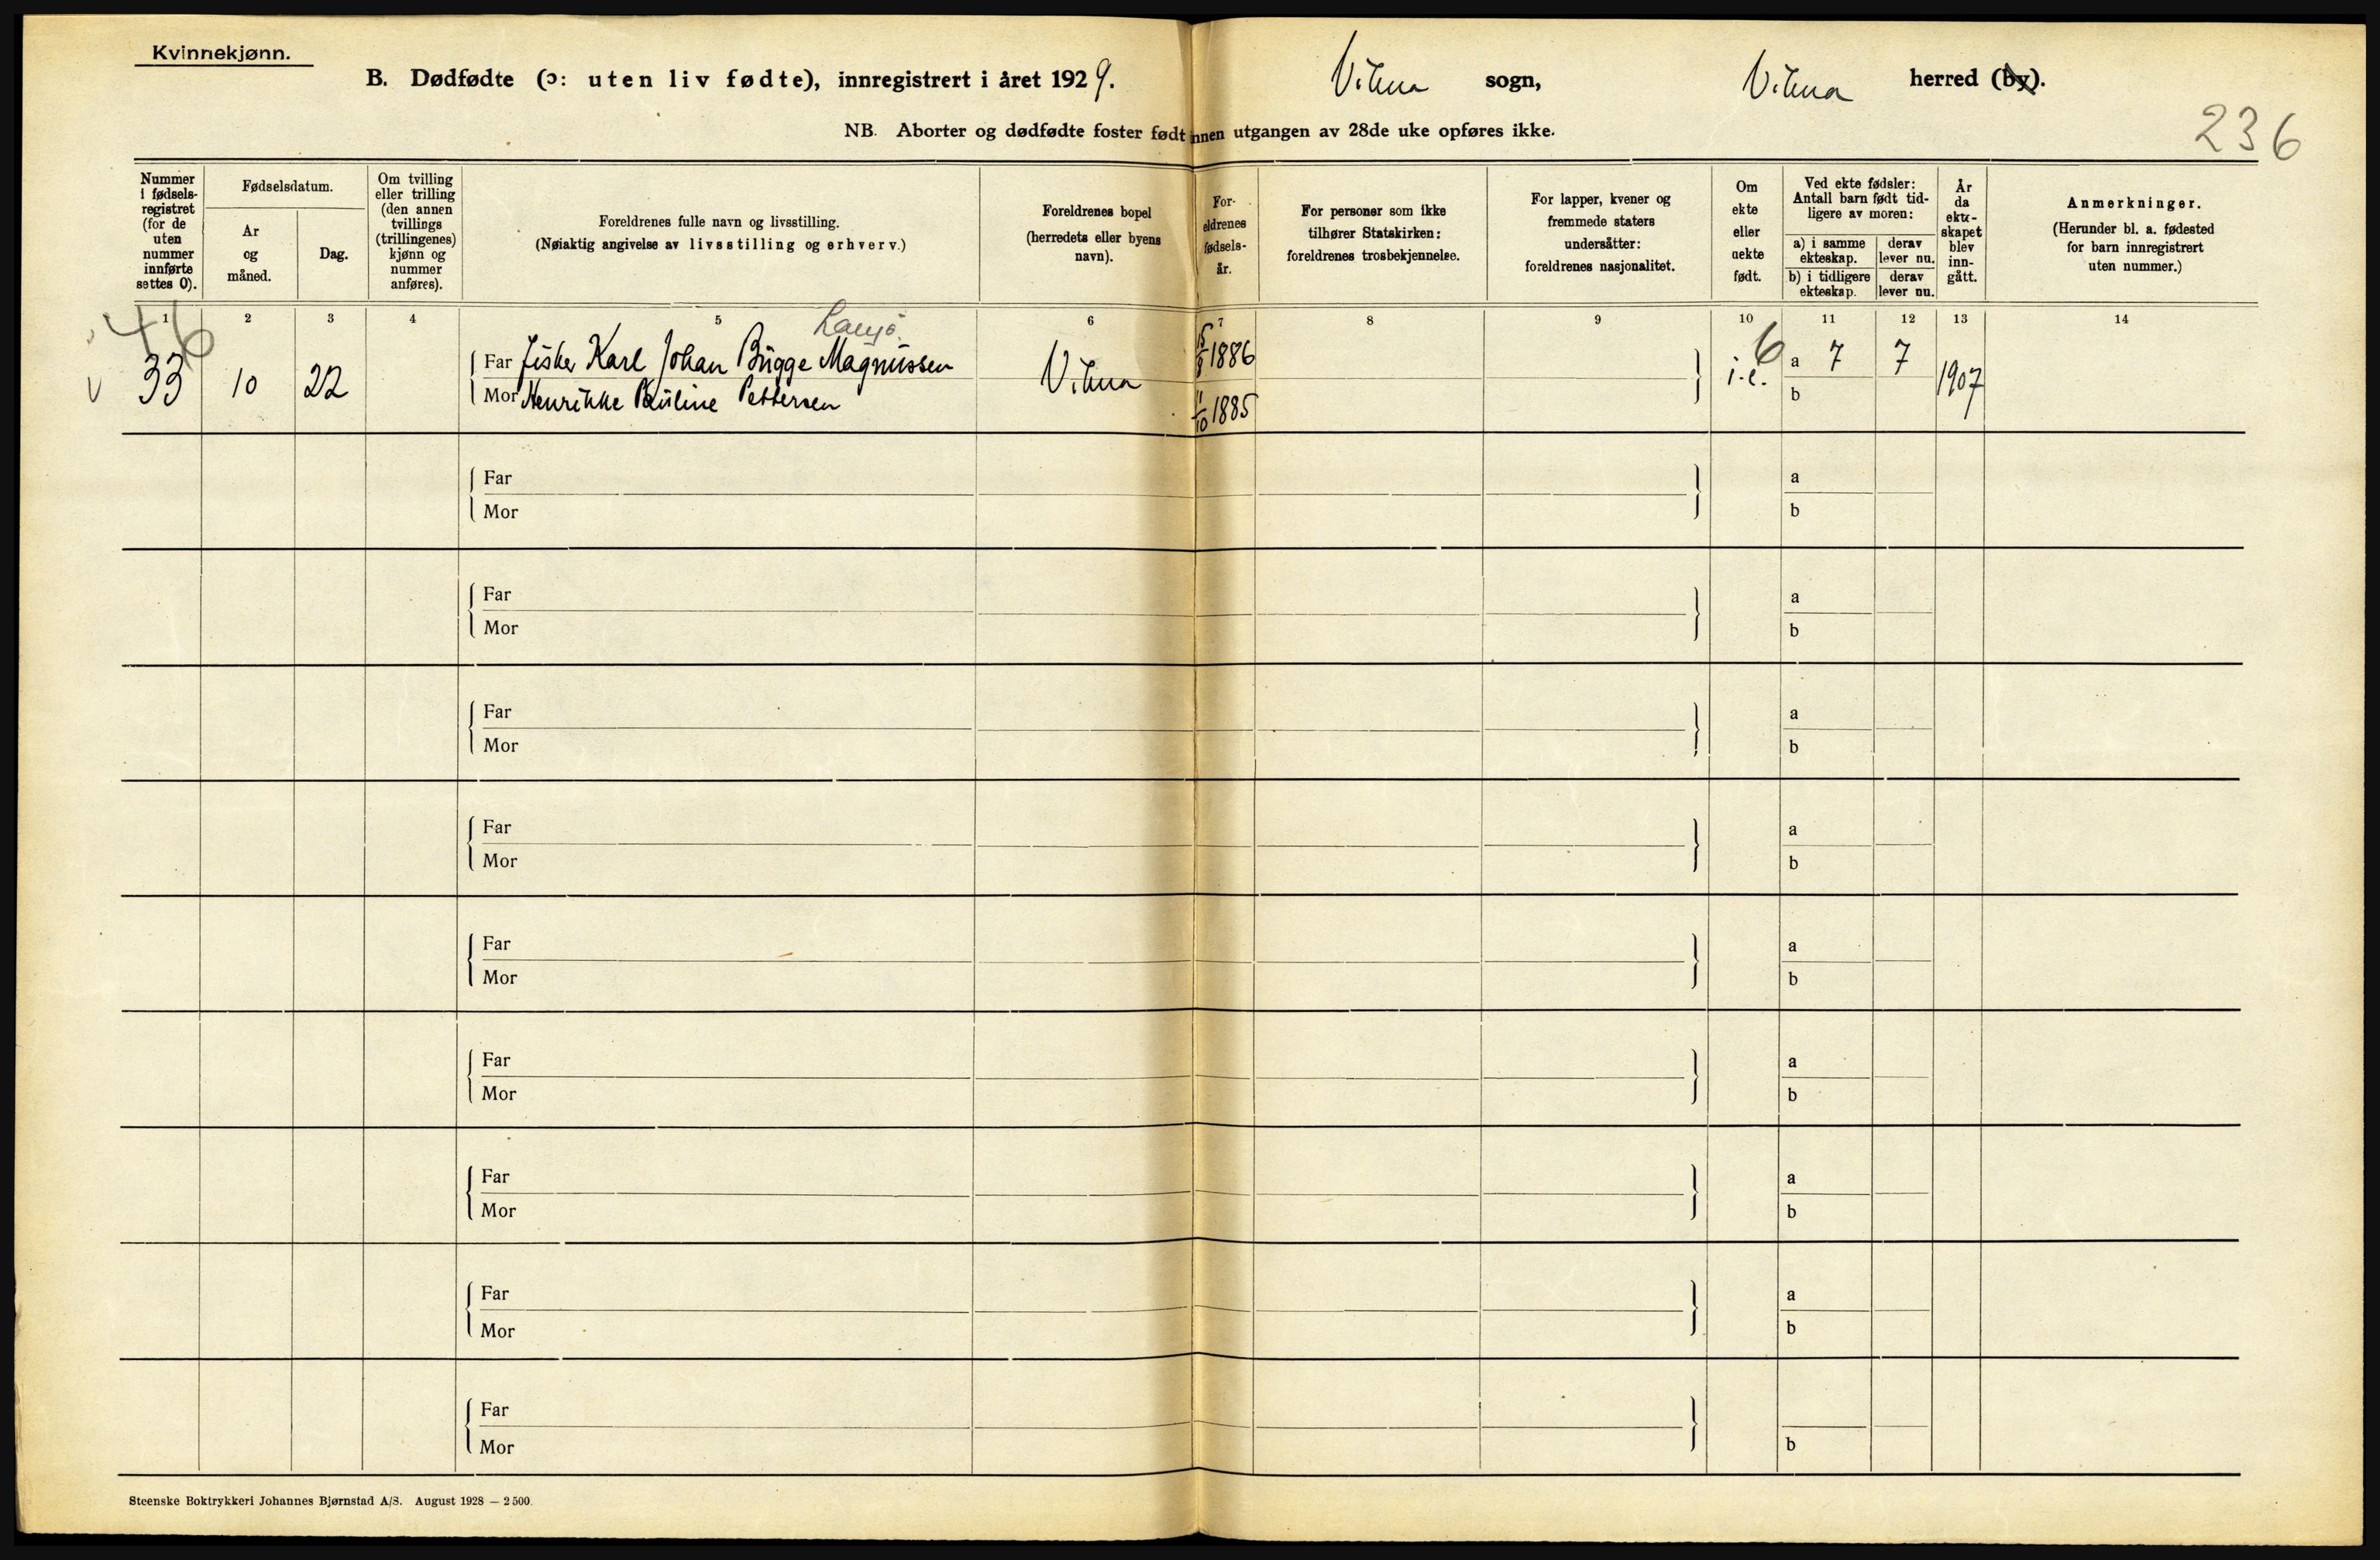 Kvinnekjønn.
B. Dødfødte (ɔ: uten liv fødte), innregistrert i året 1929. Vikna sogn, Vikna herred (by).
236
NB. Aborter og dødfødte foster født innen utgangen av 28de uke opføres ikke.
Nummer i fødsels-registret (for de uten nummer innførte settes 0).
Fødselsdatum.
År og måned.
Dag.
Om tvilling eller trilling (den annen tvillings (trillingenes) kjønn og nummer anføres).
Foreldrenes fulle navn og livsstilling.
(Nøiaktig angivelse av livsstilling og erhverv.)
Foreldrenes bopel (herredets eller byens navn).
For-eldrenes fødsels-år.
For personer som ikke tilhører Statskirken: foreldrenes trosbekjennelse.
For lapper, kvener og fremmede staters undersåtter: foreldrenes nasjonalitet.
Om ekte eller uekte født.
Ved ekte fødsler: Antall barn født tid-ligere av moren:
a) i samme ekteskap.
derav lever nu.
b) i tidligere ekteskap.
derav lever nu.
År da ekte-skapet blev inn-gått.
Anmerkninger.
(Herunder bl. a. fødested for barn innregistrert uten nummer.)
1 2 3 4 5 6 7 8 9 10 11 12 13 14
46
33 10 22
Far Fisker Karl Johan Brügge Magnussen
Mor Henrikke Pauline Pettersen
Vikna
1886
11/10 1885
6
i.e.
a 7 7
b
1907
Far
Mor
a
b
Far
Mor
a
b
Far
Mor
a
b
Far
Mor
a
b
Far
Mor
a
b
Far
Mor
a
b
Far
Mor
a
b
Far
Mor
a
b
Far
Mor
b
Steenske Boktrykkeri Johannes Bjørnstad A/S. August 1928 — 2500.